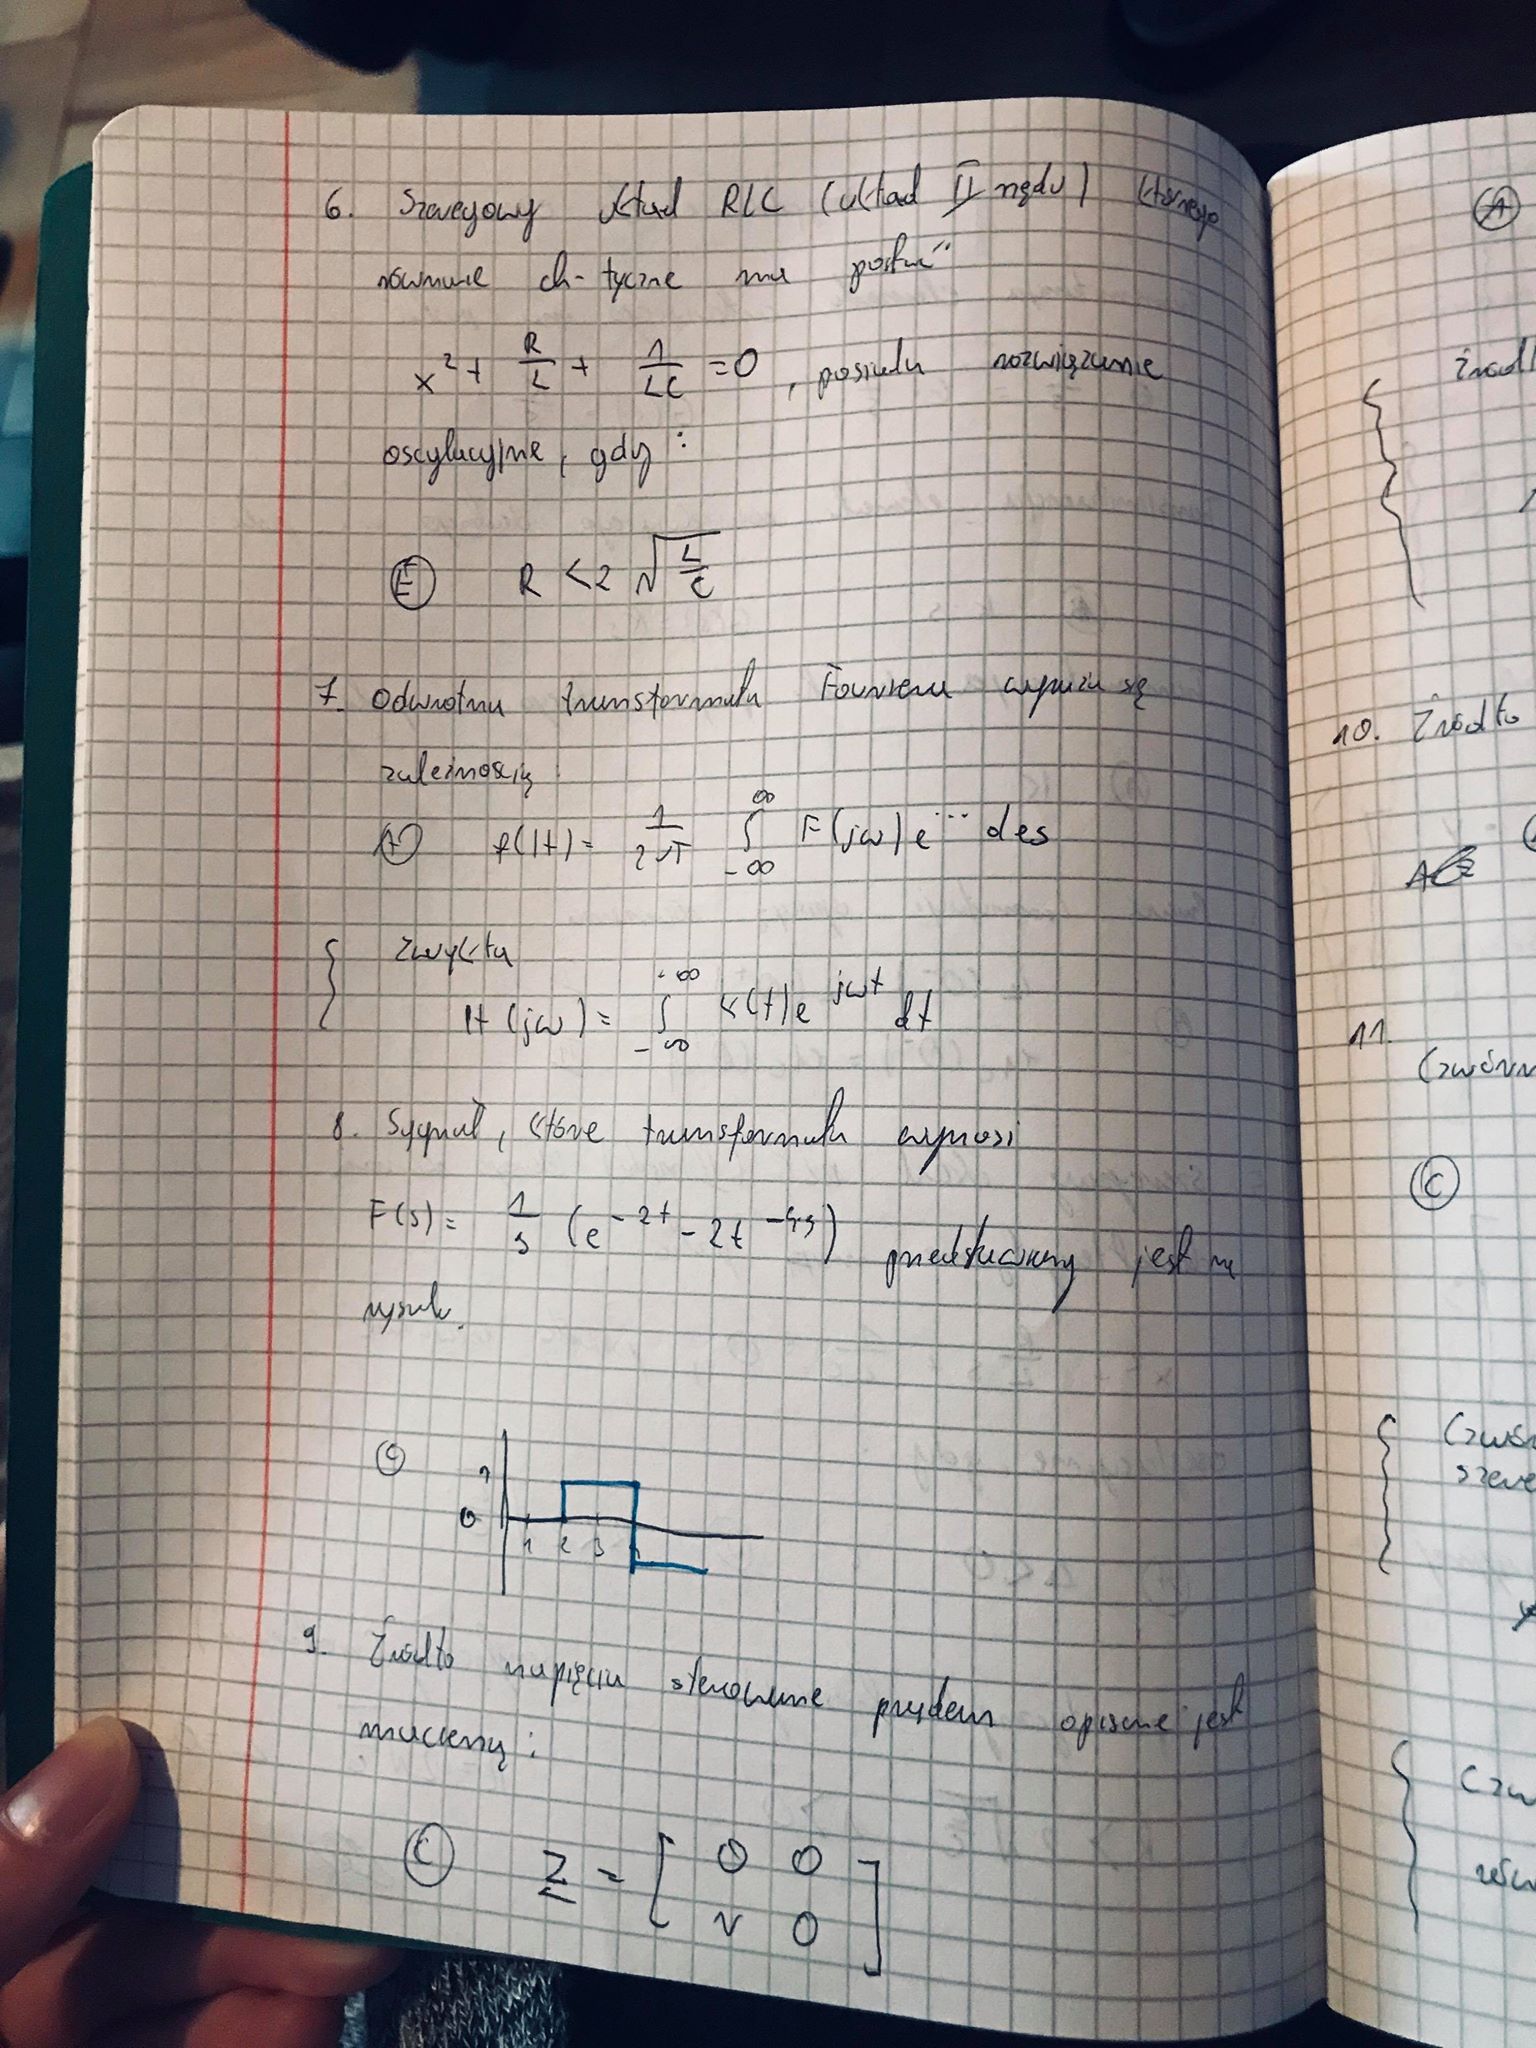 6. Szeregowy układ RLC (układ II rzędu) którego
równanie ch-tyczne ma postać
x² + R/L + 1/LC = 0, posiada rozwiązanie
oscylacyjne, gdy:
Ⓔ R < 2 √(L/C)
7. Odwrotna transformata Fouriera wyraża się
zależnością
Ⓐ f(t) = 1/2π ∫ F(jω) e ... dω
∞
-∞
{ Zwykła
H(jω) = ∫ k(t) e^jωt dt
∞
-∞
8. Sygnał, które transformata wynosi
F(s) = 1/s (e^-2t - 2t^-4s) przedstawiony jest na
rysunku.
Ⓒ 1
0
1 2 3
9. Źródło napięcia sterowane prądem opisane jest
macierzą:
Ⓒ Z = [ 0 0
r 0 ]
Ⓐ
{
10. Źródło
A
11.
Ⓒ
{
{